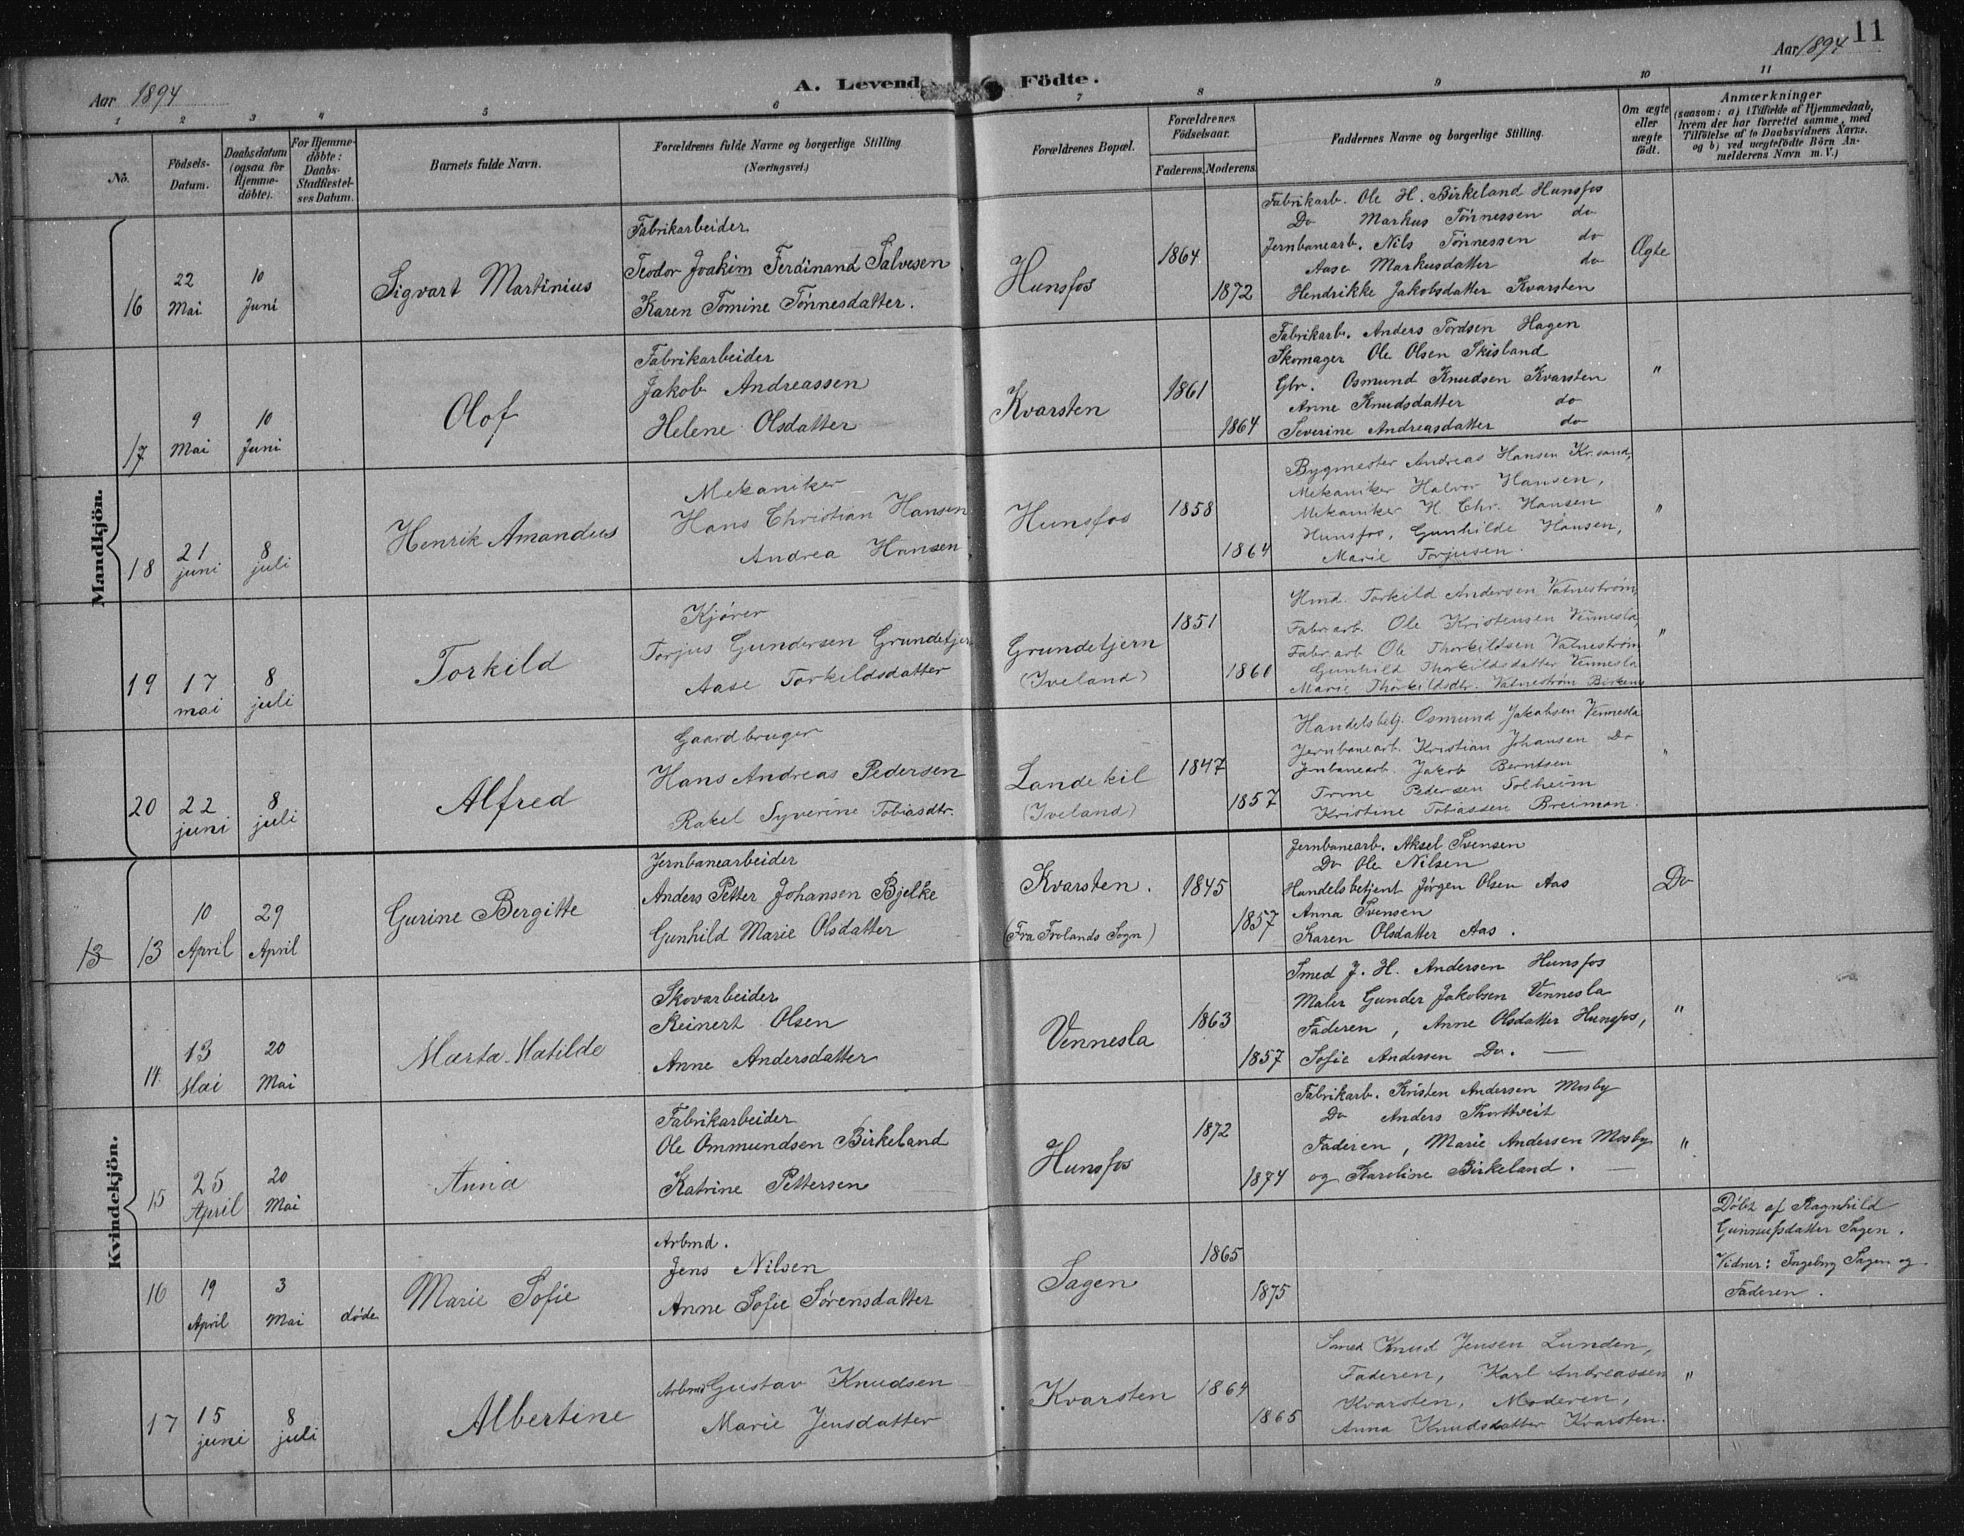 11
Aar 1894
A. Levende Födte.
Aar 1894
1 2 3 4 5 6 7 8 9 10 11
No.
Födsels-Datum.
Daabsdatum (ogsaa for Hjemme-döbte).
For Hjemme-döbte: Daabs-Stadfæstel-ses Datum.
Barnets fulde Navn.
Forældrenes fulde Navne og borgerlige Stilling
(Næringsvei.)
Forældrenes Bopæl.
Forældrenes Födselsaar.
Faderens. Moderens.
Faddernes Navne og borgerlige Stilling.
Om ægte eller uægte födt.
Anmærkninger
(saasom: a) i Tilfælde af Hjemmedaab,
hvem der har forrettet samme, med
Tilföielse af to Daabsvidners Navne.
og b) ved uægtefödte Börn An-
melderens Navn m. V.)
Mandkjön.
16 22 Mai 10 Juni
Sigvart Martinius
Fabrikarbeider
Teodor Joakim Ferdinand Salvesen
Karen Tomine Tønnesdatter.
Hunsfos
1864
1872
Fabrikarb. Ole H. Birkeland Hunsfos
Do Markus Tønnessen do
Jernbanearb. Nils Tønnessen do
Aase Markusdatter do
Hendrikke Jakobsdatter Kvarsten
Ægte
17 9 Mai 10 Juni
Olof
Fabrikarbeider
Jakob Andreassen
Helene Olsdatter
Kvarsten
1861
1864
Fabrikarb. Anders Tordsen Hagen
Skomager Ole Olsen Skisland
Gbr. Osmund Knudsen Kvarsten
Anne Knudsdatter do
Severine Andreasdatter do
"
18 21 juni 8 juli
Henrik Amandus
Mekaniker
Hans Christian Hansen
Andrea Hansen
Hunsfos
1858
1864
Bygmester Andreas Hansen Kr.sand,
Mekaniker Halvor Hansen,
Mekaniker H. Chr. Hansen
Hunsfos, Gunhilde Hansen,
Marie Torjusen.
"
19 17 mai 8 juli
Torkild
Kjører
Torjus Gundersen Grundetjern
Aase Torkildsdatter
Grundetjern
(Iveland)
1851
1860
Hmd. Torkild Andersen Vatnestrøm
Fabr.arb. Ole Kristensen Vennesla
Fabr.arb Ole Thorkildsen Vatnestrøm
Gunhild Thorkildsdatter Vennesla
Marie Thorkildsdtr. Vatnestrøm Birkenes
"
20 22 juni 8 juli
Alfred
Gaardbruger
Hans Andreas Pedersen
Rakel Syverine Tobiasdtr.
Landekil
(Iveland)
1847
1857
Handelsbetj. Osmund Jakobsen Vennesla
Jernbanearb. Kristian Johansen Do
Jernbanearb. Jakob Berntsen
Trine Pedersen Solheim
Kristine Tobiassen Breiman.
"
Kvindekjön.
13 13 10 April 29 April
Gurine Bergitte
Jernbanearbeider
Anders Petter Johansen Bjelke
Gunhild Marie Olsdatter
Kvarsten.
(Fra Frolands Sogn)
1845
1857
Jernbanearb. Aksel Svensen
Do Ole Nilsen
Handelsbetjent Jørgen Olsen Aas
Anna Svensen
Karen Olsdatter Aas.
Do
14 13 Mai 20 Mai
Marta Matilde
Skovarbeider
Reinert Olsen
Anne Andersdatter
Vennesla
1863
1857
Smed J. H. Andersen Hunsfos
Maler Gunder Jakobsen Vennesla
Faderen, Anne Olsdatter Hunsfos,
Sofie Andersen Do. —
"
15 25 April 20 Mai
Anna
Fabrikarbeider
Ole Ommundsen Birkeland
Katrine Pettersen
Hunsfos
1872
1874
Fabrikarb. Kristen Andersen Mosby
Do Anders Thortveit
Faderen, Marie Andersen Mosby
og Karoline Birkeland. —
"
16 19 April 3 Mai døde
Marie Sofie
Arbmd.
Jens Nilsen
Anne Sofie Sørensdatter
Sagen
1865
1875
Døbt af Ragnhild
Gunnulfsdatter Sagen.
Vidner: Ingebrg Sagen og
Faderen.
17 15 juni 8 juli
Albertine
Arbmd Gustav Knudsen
Marie Jensdatter
Kvarsten
1864
1865
Smed Knud Jensen Lunden,
Faderen, Karl Andreassen
Kvarsten, Moderen,
Anna Knudsdatter Kvarsten.
"